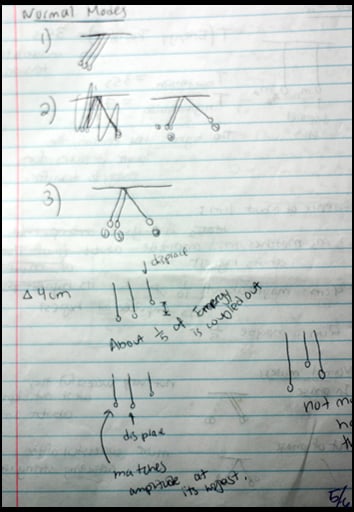 Normal Modes
1)
2)
3)
displace
Δ 4cm
About 1/5 of Energy
is coupled out
displace
matches
amplitude at
its highest.
not
5/6